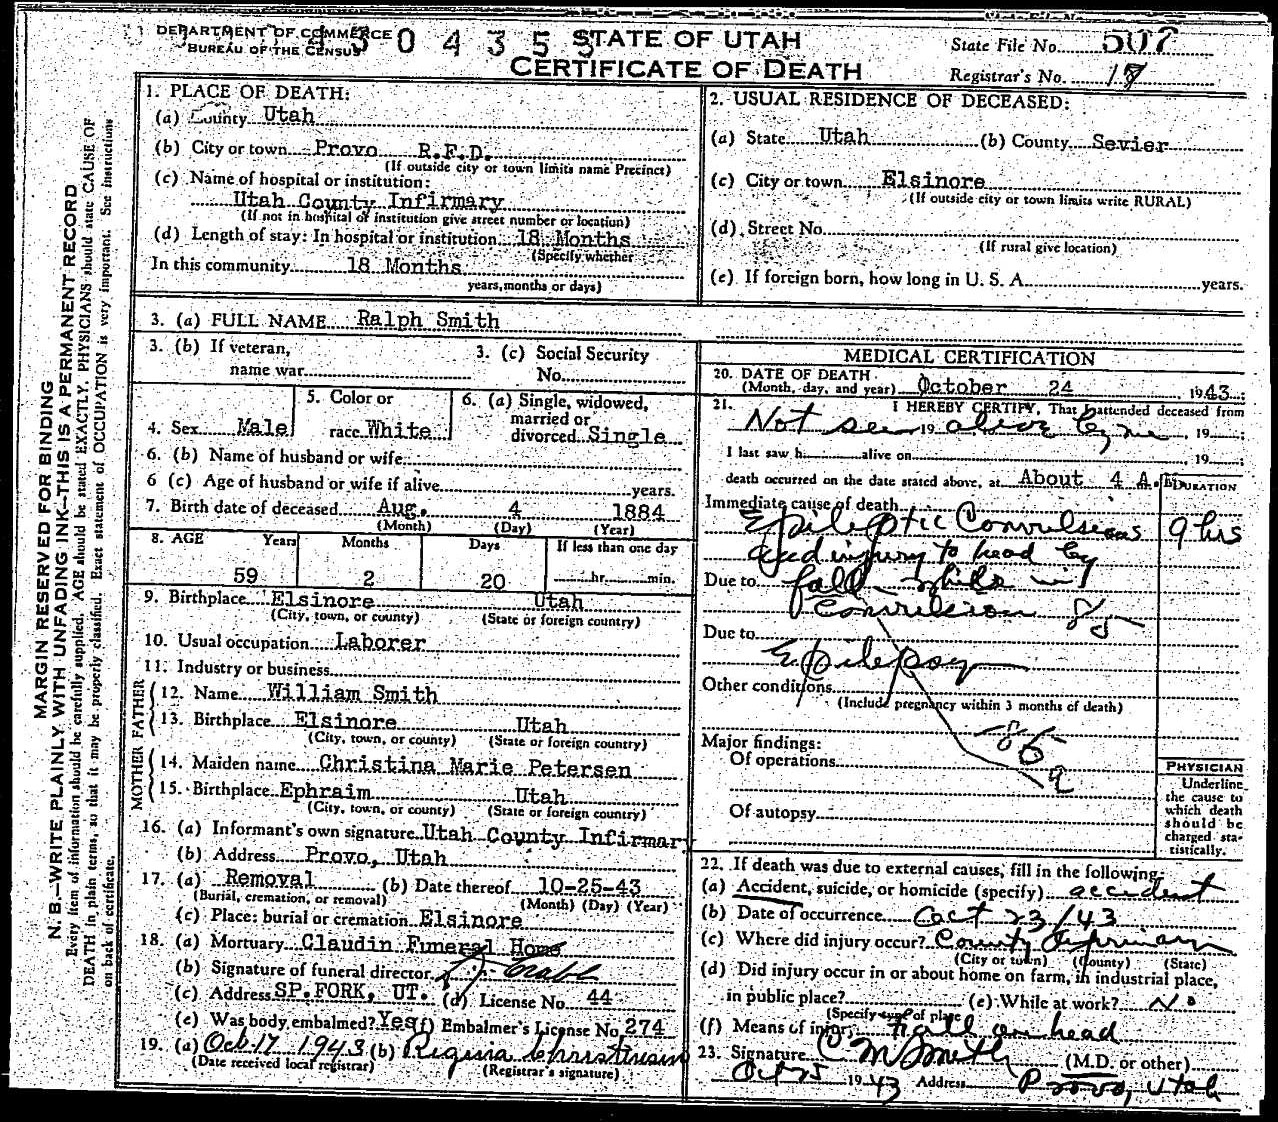 DEPARTMENT OF COMMERCE
BUREAU OF THE CENSUS
STATE OF UTAH
CERTIFICATE OF DEATH
State File No. 507
Registrar's No.
MARGIN RESERVED FOR BINDING
N. B.—WRITE PLAINLY WITH UNFADING INK—THIS IS A PERMANENT RECORD
Every item of information should be carefully supplied. AGE should be stated EXACTLY. PHYSICIANS should state CAUSE OF
DEATH in plain terms, so that it may be properly classified. Exact statement of OCCUPATION is very important. See instructions
on back of certificate.
1. PLACE OF DEATH:
(a) County Utah
(b) City or town Provo R.F.D.
(If outside city or town limits name Precinct)
(c) Name of hospital or institution:
Utah County Infirmary
(If not in hospital or institution give street number or location)
(d) Length of stay: In hospital or institution 18 Months
(Specify whether
In this community 18 Months
years, months or days)
2. USUAL RESIDENCE OF DECEASED:
(a) State Utah (b) County Sevier
(c) City or town Elsinore
(If outside city or town limits write RURAL)
(d) Street No.
(If rural give location)
(e) If foreign born, how long in U. S. A. years.
3. (a) FULL NAME Ralph Smith
3. (b) If veteran,
name war
3. (c) Social Security
No.
4. Sex Male
5. Color or
race White
6. (a) Single, widowed,
married or
divorced Single
6. (b) Name of husband or wife
6 (c) Age of husband or wife if alive years.
7. Birth date of deceased Aug. 4 1884
(Month) (Day) (Year)
8. AGE Years Months Days If less than one day
59 2 20 hr. min.
9. Birthplace Elsinore Utah
(City, town, or county) (State or foreign country)
10. Usual occupation Laborer
11. Industry or business
FATHER
12. Name William Smith
13. Birthplace Elsinore Utah
(City, town, or county) (State or foreign country)
MOTHER
14. Maiden name Christina Marie Petersen
15. Birthplace Ephraim Utah
(City, town, or county) (State or foreign country)
16. (a) Informant's own signature Utah County Infirmary
(b) Address Provo, Utah
17. (a) Removal (b) Date thereof 10-25-43
(Burial, cremation, or removal) (Month) (Day) (Year)
(c) Place: burial or cremation Elsinore
18. (a) Mortuary Claudin Funeral Home
(b) Signature of funeral director
(c) Address SP. FORK, UT. (d) License No. 44
(e) Was body embalmed? Yes (f) Embalmer's License No. 274
19. (a) Oct. 17 1943 (b) Regina Christensen
(Date received local registrar) (Registrar's signature)
MEDICAL CERTIFICATION
20. DATE OF DEATH
(Month, day, and year) October 24 1943
21. I HEREBY CERTIFY, That I attended deceased from
Not seen 19 alive by me, 19
I last saw h alive on 19
death occurred on the date stated above, at About 4 A.M.
DURATION
Immediate cause of death
Epileptic Convulsions 9 hrs
and injury to head by
Due to fall while in
Convulsion
Due to
Epilepsy
Other conditions
(Include pregnancy within 3 months of death)
Major findings:
Of operations
Of autopsy
PHYSICIAN
Underline
the cause to
which death
should be
charged sta-
tistically.
22. If death was due to external causes, fill in the following:
(a) Accident, suicide, or homicide (specify) accident
(b) Date of occurrence Oct 23/43
(c) Where did injury occur? County
(City or town) (County) (State)
(d) Did injury occur in or about home on farm, in industrial place,
in public place? (e) While at work? No
(Specify type of place
(f) Means of injury fall on head
23. Signature C M Smith (M.D. or other)
Oct 25 1943 Address Provo, Utah